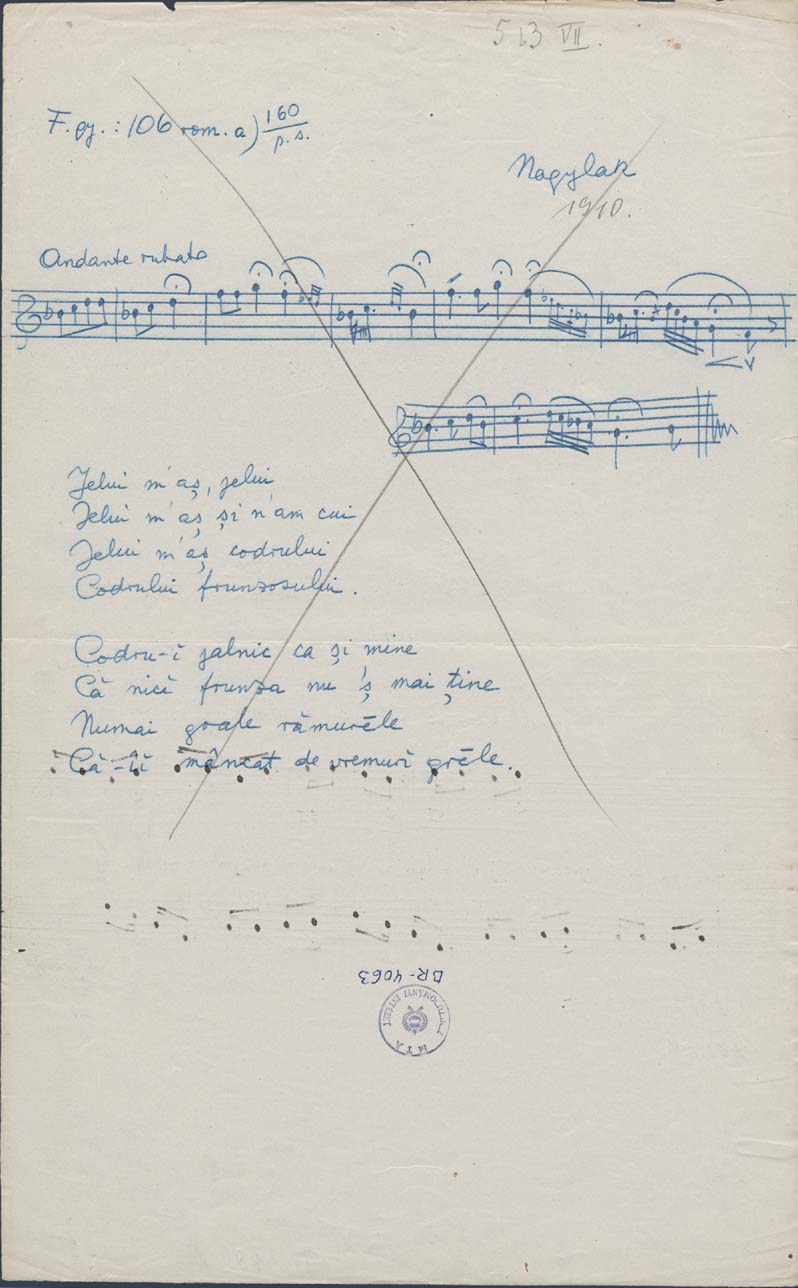 513 VII.
F. gy. : 106 rom. a) 160
p. s.
Nagylak
1910.
Andante rubato
Jelui m'aș, jelui
Jelui m'aș și n'am cui
Jelui m'aș codrului
Codrului frunzosului.
Codru-ĭ jalnic ca și mine
Că nicĭ frunza nu 'ș mai ține
Numai goale rămurēle
Că mâncat de vremurĭ grēle.
BR-4063
MTA